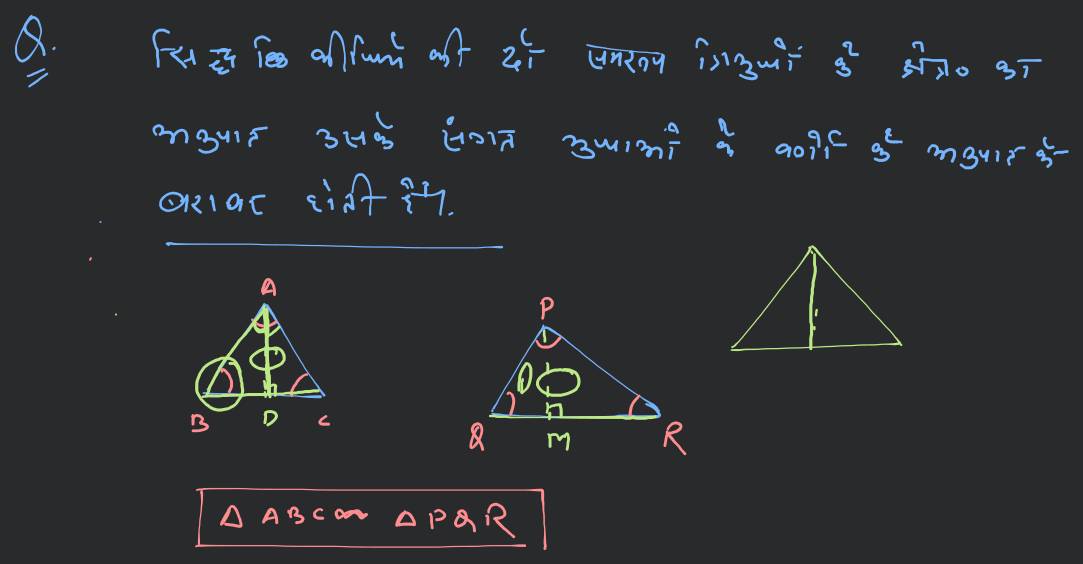 Q. सिद्ध कीजिये की दो समरूप त्रिभुजों के क्षेत्र० का
अनुपात उसके संगत भुजाओं के वर्गों के अनुपात के
बराबर होती है।
A
P
B D C
Q M R
Δ ABC ∼ Δ PQR